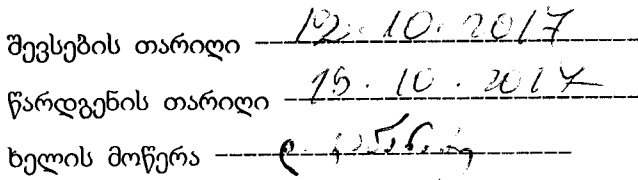 შევსების თარიღი 12.10.2017
წარდგენის თარიღი 15.10.2017
ხელის მოწერა